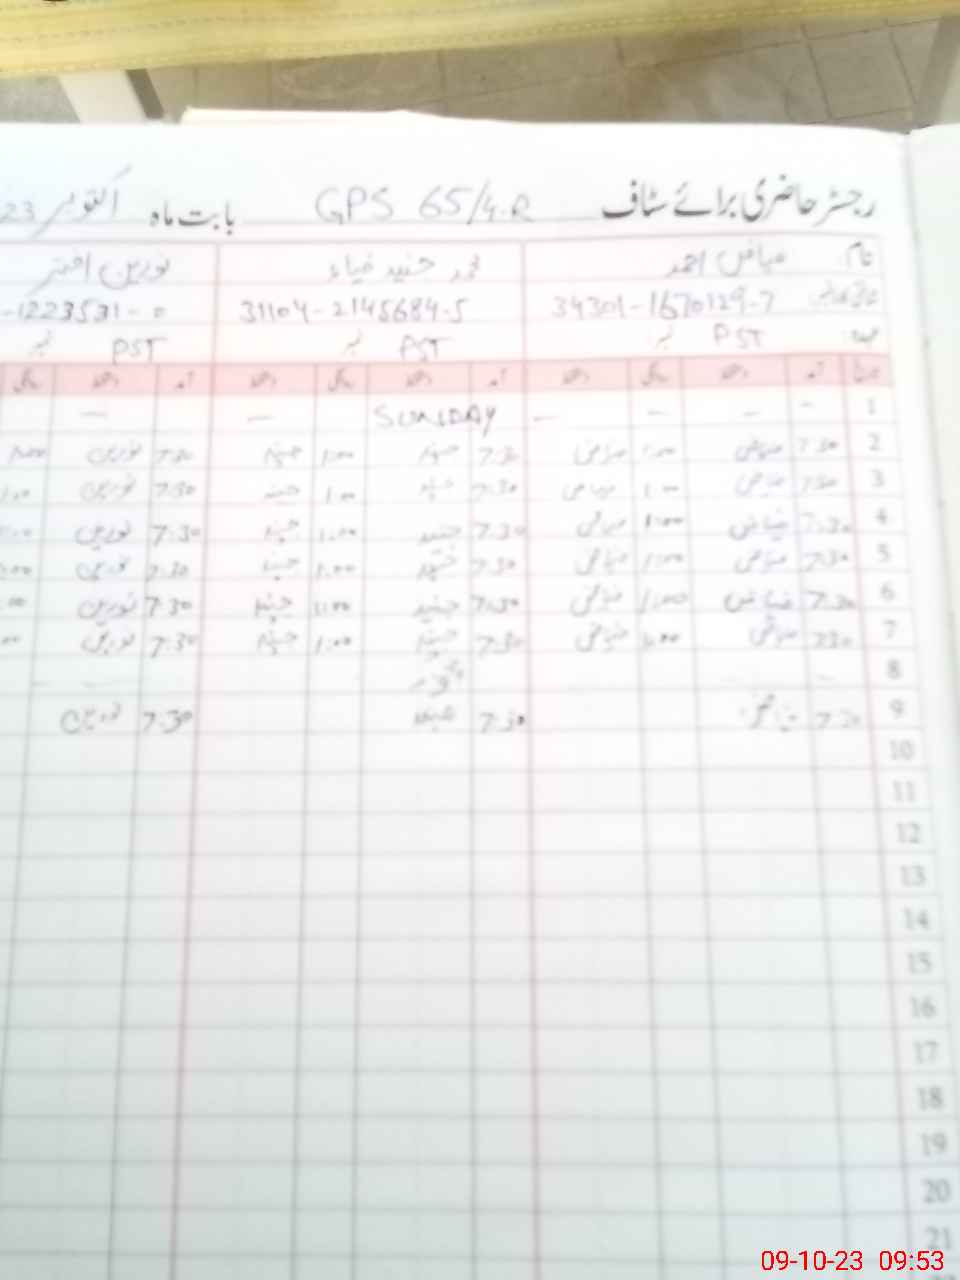 رجسٹر حاضری برائے سٹاف GPS 65/4.R بابت ماہ اکتوبر 23
نام فیاض احمد محمد جنید ضیاء نورین اختر
34301-1670129-7 31104-2145684-5 -1223531-0
PST نمبر PST نمبر PST نمبر
آمد دستخط روانگی دستخط آمد دستخط روانگی دستخط آمد دستخط روانگی
1 - - - - SUNDAY - -
2 7:30 فیاض 1:00 فیاض 7:30 جنید 1:00 جنید 7:30 نورین
3 7:30 فیاض 1:00 فیاض 7:30 جنید 1:00 جنید 7:30 نورین
4 7:30 فیاض 1:00 فیاض 7:30 جنید 1:00 جنید 7:30 نورین
5 7:30 فیاض 1:00 فیاض 7:30 جنید 1:00 جنید 7:30 نورین
6 7:30 فیاض 1:00 فیاض 7:30 جنید 1:00 جنید 7:30 نورین
7 7:30 فیاض 1:00 فیاض 7:30 جنید 1:00 جنید 7:30 نورین
8
9 7:30 7:30 جنید 7:30 نورین
10
11
12
13
14
15
16
17
18
19
20
21
09-10-23 09:53